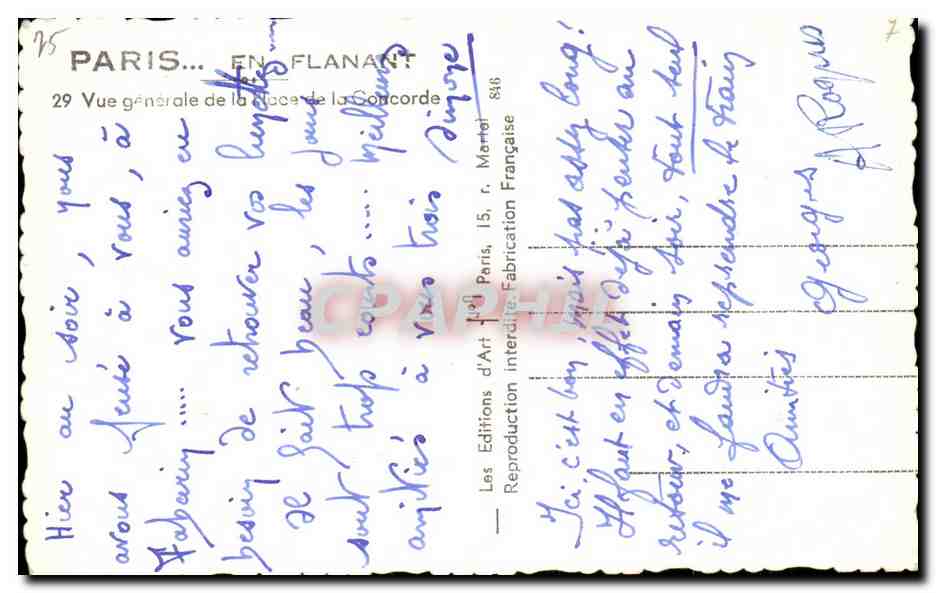 75
7
PARIS... EN FLANANT
29 Vue générale de la Place de la Concorde
Hier au soir, nous
avons pensé à vous, à
Tabarin.... vous auriez eu
besoin de retrouver vos lunettes....
Il fait beau, les jours
sont trop courts.... meilleures
amitiés à vous trois
Les Editions d'Art Paris, 15, r. Martel 846
Reproduction interdite. Fabrication Française
Ici c'est bon, mais pas assez long!
Il faut en effet déjà penser au
retour, et demain soir, tout seul
il me faudra reprendre le train
Amitiés
Georges
CPAPHIL